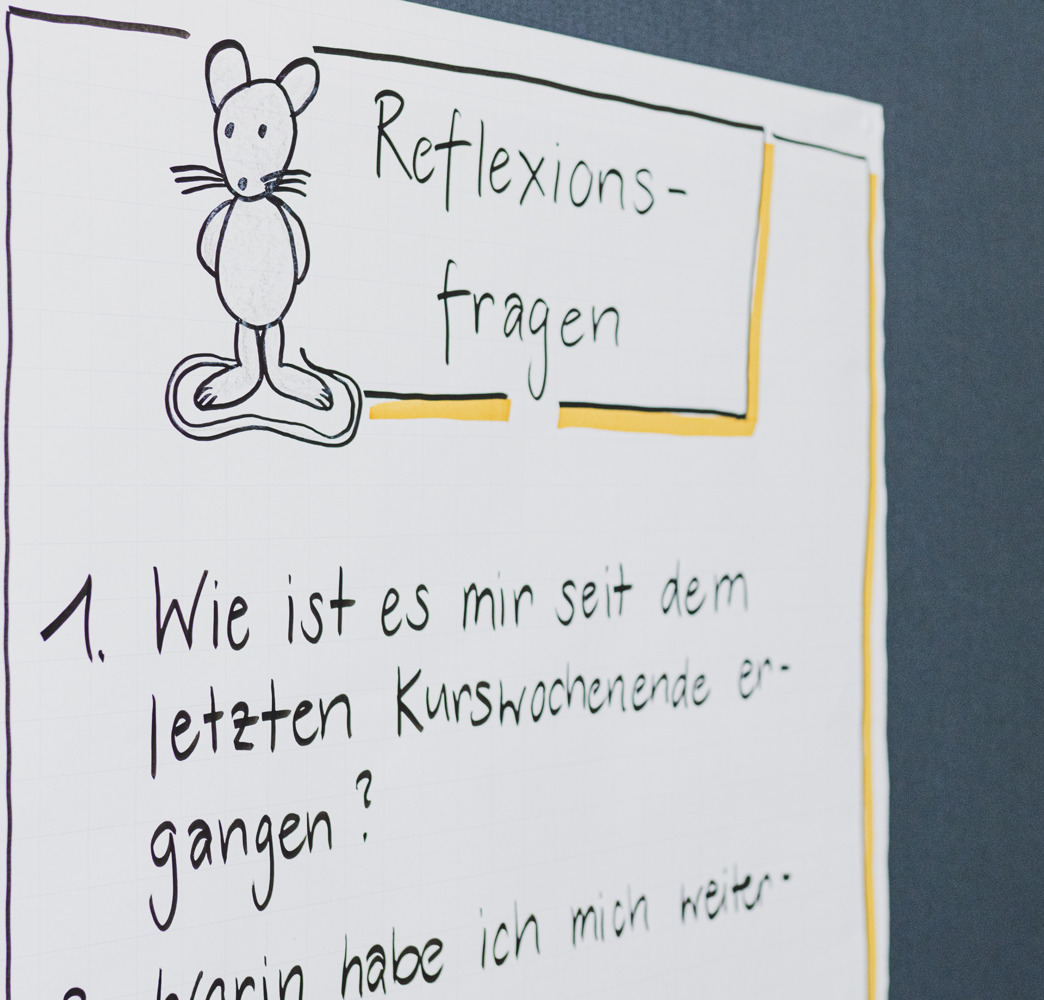 Reflexions-
fragen
1. Wie ist es mir seit dem
letzten Kurswochenende er-
gangen?
Warin habe ich mich weiter-